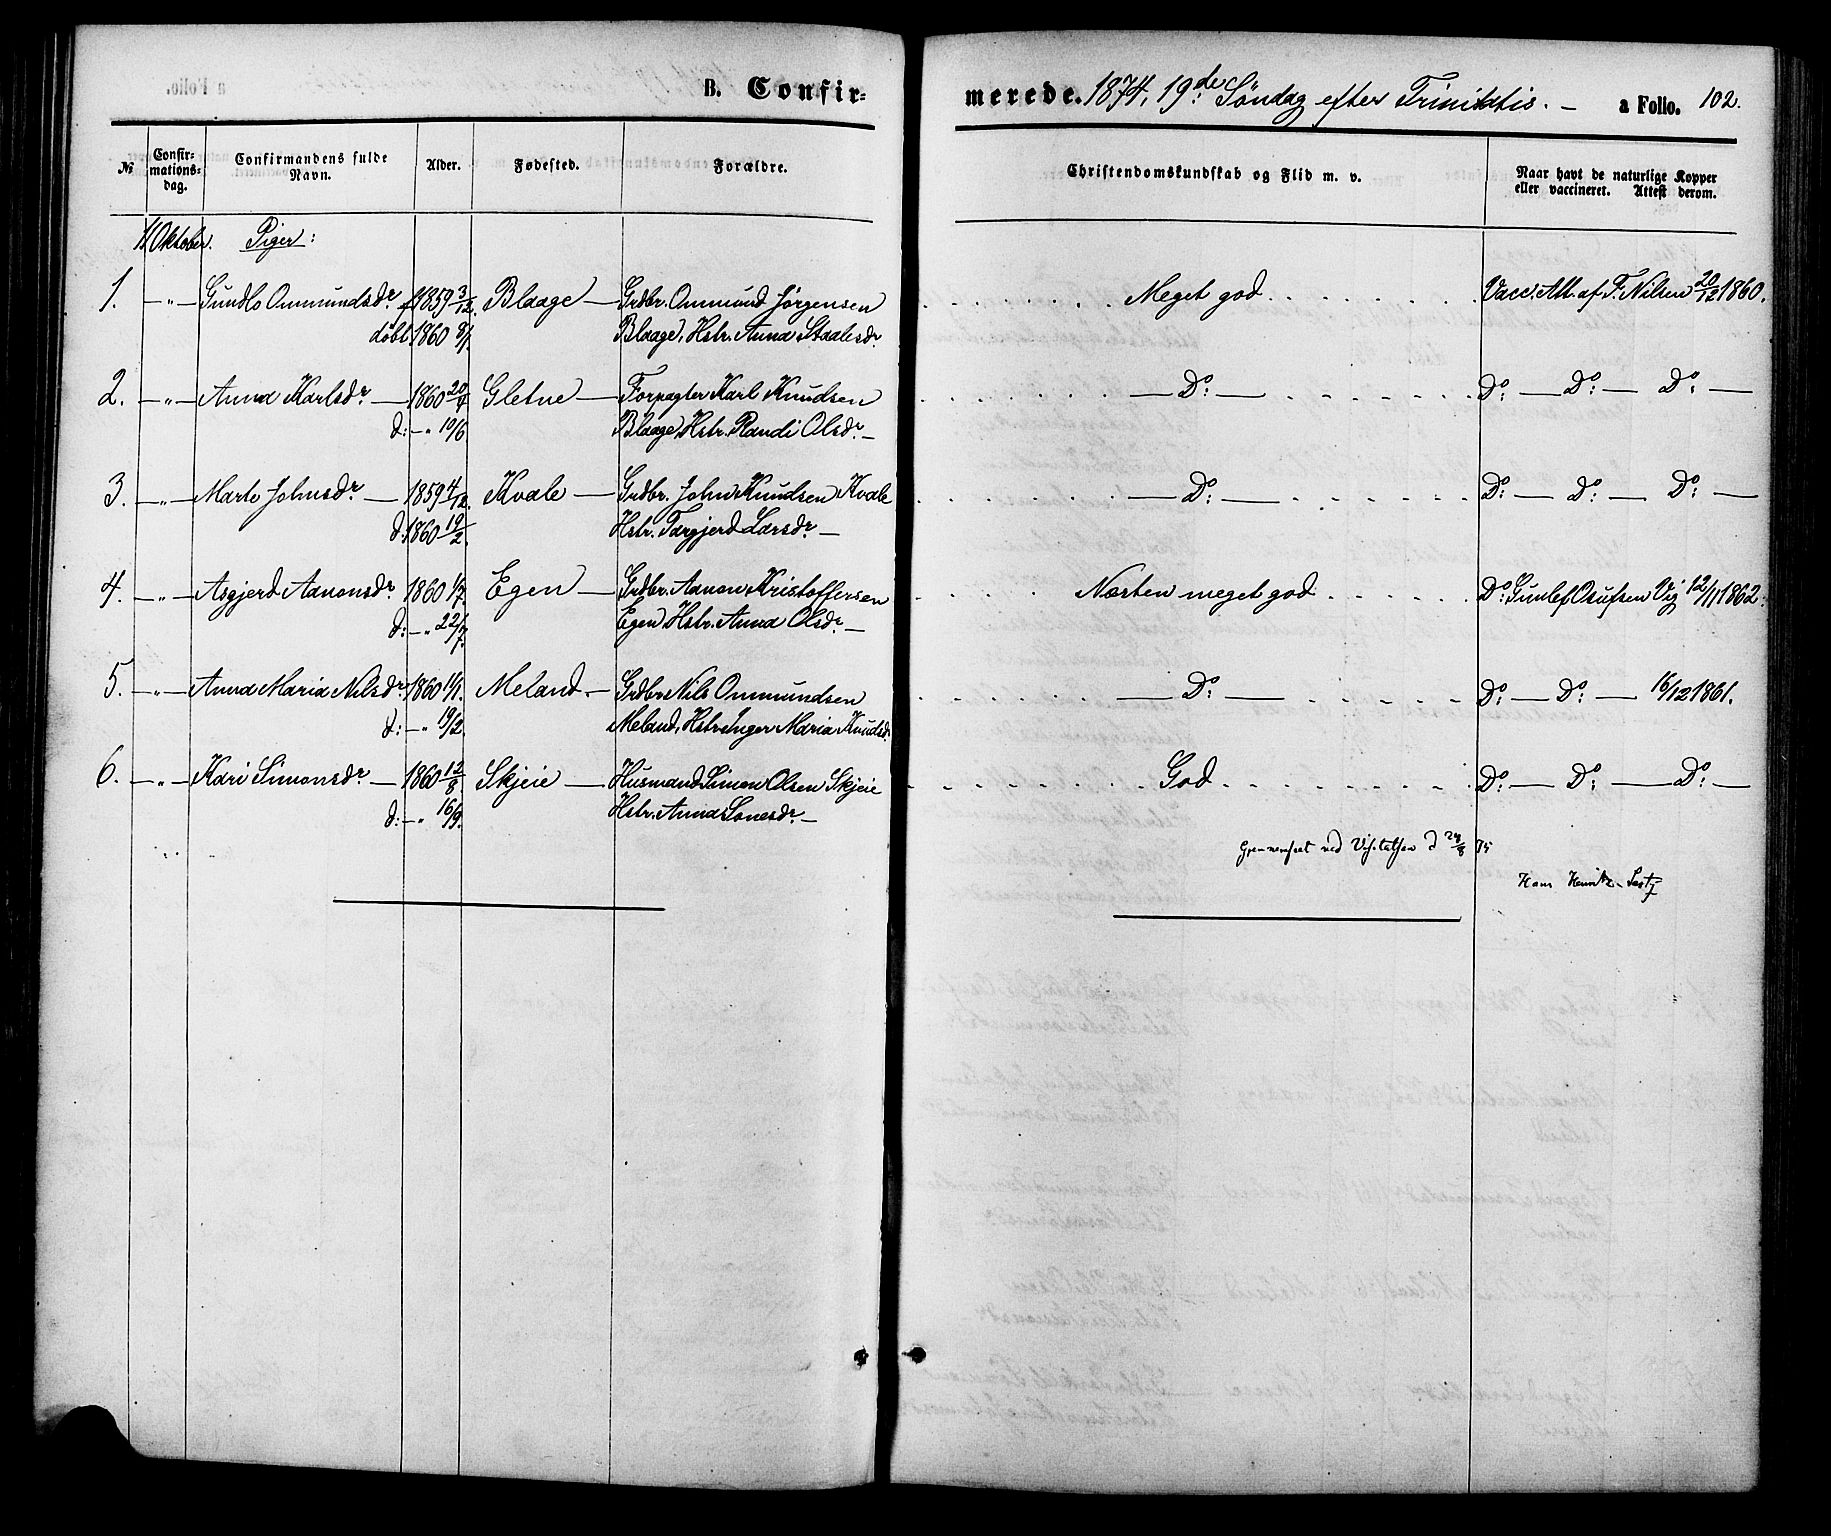 B. Confirmerede. 1874, 19de Søndag efter Trinitatis. — a Folio. 102.
№ Confirmationsdag. Confirmandens fulde Navn. Alder. Fødested. Forældre. Christendomskundskab og Flid m. v. Naar havt de naturlige Kopper eller vaccineret. Attest derom.
11 Oktober. Piger:
1. —„— Gundlo Ommundsdr. f. 1859 3/12. Blaage — Grdbr. Ommund Jørgensen Meget god Vacc. Att. af F. Nilsen 20/12 1860.
døbt 1860 8/1. Blaage, Hstr. Anna Staalesdr.
2. —„— Anna Karlsdr. — 1860 20/4 Gletne — Forpagter Karl Knudsen — Do: — Do: — Do — Do: —
d: — „ 10/6 Blaage, Hstr. Randi Olsdr. —
3. —„— Marte Johnsdr. — 1859 4/12. Kvale — Grdbr. John Knudsen Kvale — Do: — Do: — Do: — Do: —
d. 1860 19/2. Hstr. Targjerd Larsdr. —
4. —„— Asgjerd Aanonsdr. 1860 1/7. Egen — Grdbr. Aanon Kristoffersen Næsten meget god Do: Gunlef Osufsen Vig 12/11 1862.
d: — „ 22/7. Egen, Hstr. Anna Olsdr. —
5. —„— Anna Maria Nilsdr. 1860 11/1. Meland — Grdbr. Nils Ommundsen — Do: — Do: — Do: — 16/12 1861.
d: — „ 19/2. Meland, Hstr. Inger Maria Knudsdr.
6. —„— Kari Simonsdr. — 1860 12/8 Skjeie — Husmand Simon Olsen Skjeie God Do: — Do: — Do: —
d: — „ 16/9. Hstr. Anna Lonesdr. —
Gjennemseet ved Visitatsen d 24/8 75
Hans Henrik